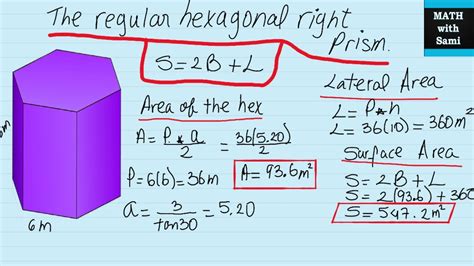 The regular hexagonal right
Prism.
MATH
with
Sami
S=2B+L
Area of the hex
A=P*a/2=36(5.20)/2
P=6(6)=36m
A=93.6m²
a=3/tan30=5.20
Lateral Area
L=P*h
L=36(10)=360m²
Surface Area
S=2B+L
S=2(93.6)+360
S=547.2m²
m
6m